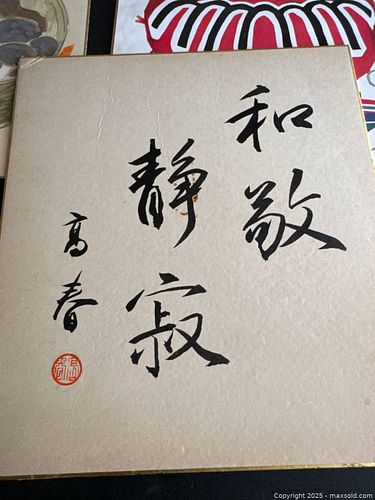 和敬
静寂
高春
Copyright 2025 - maxsold.com